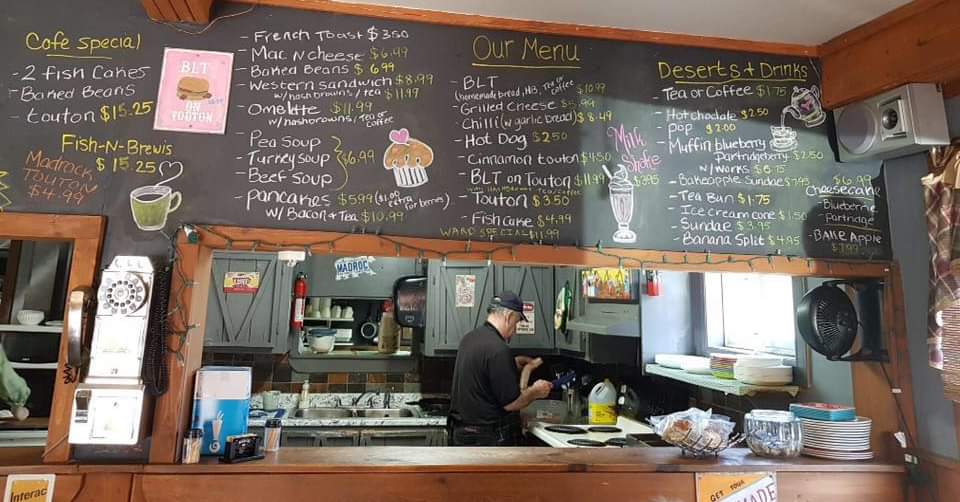 Cafe Special
- 2 fish Cakes
- Baked Beans
- touton $15.25
Fish-N-Brewis
$15.25
Madrock
TOUTON
$4.99
BLT
ON
TOUTON
- French Toast $3.50
- Mac N cheese $6.99
- Baked Beans $6.99
- Western Sandwich $8.99
w/hashbrowns/tea $11.99
- Omelette $11.99
w/hashbrowns/Tea or coffee
- Pea Soup
- Turkey Soup
- Beef Soup
$6.99
- pancakes $5.99 ($1.00 extra for berries)
w/ Bacon & Tea $10.99
Our Menu
- BLT
(homemade bread, HB, Tea or coffee $10.99
- Grilled Cheese $5.99
- Chilli (w garlic bread) $8.49
- Hot Dog $2.50
- Cinnamon touton $4.50
- BLT on Touton $11.99
- Touton $3.50
- Fish cake $4.99
WARD SPECIAL $11.99
Milk
Shake
$3.95
Deserts & Drinks
- Tea or Coffee $1.75
- Hot choclate $2.50
- Pop $2.00
- Muffin blueberry
Partridgeberry $2.50
w/works $6.75
- Bakeapple Sundae $7.95
- Tea Bun $1.75
- Ice cream cone $1.50
- Sundae $3.95
- Banana Split $4.95
$6.99
Cheesecake
- Blueberrie
- partridge
- BAKE Apple
$7.99
MADROC
Interac
GET YOUR
MADE